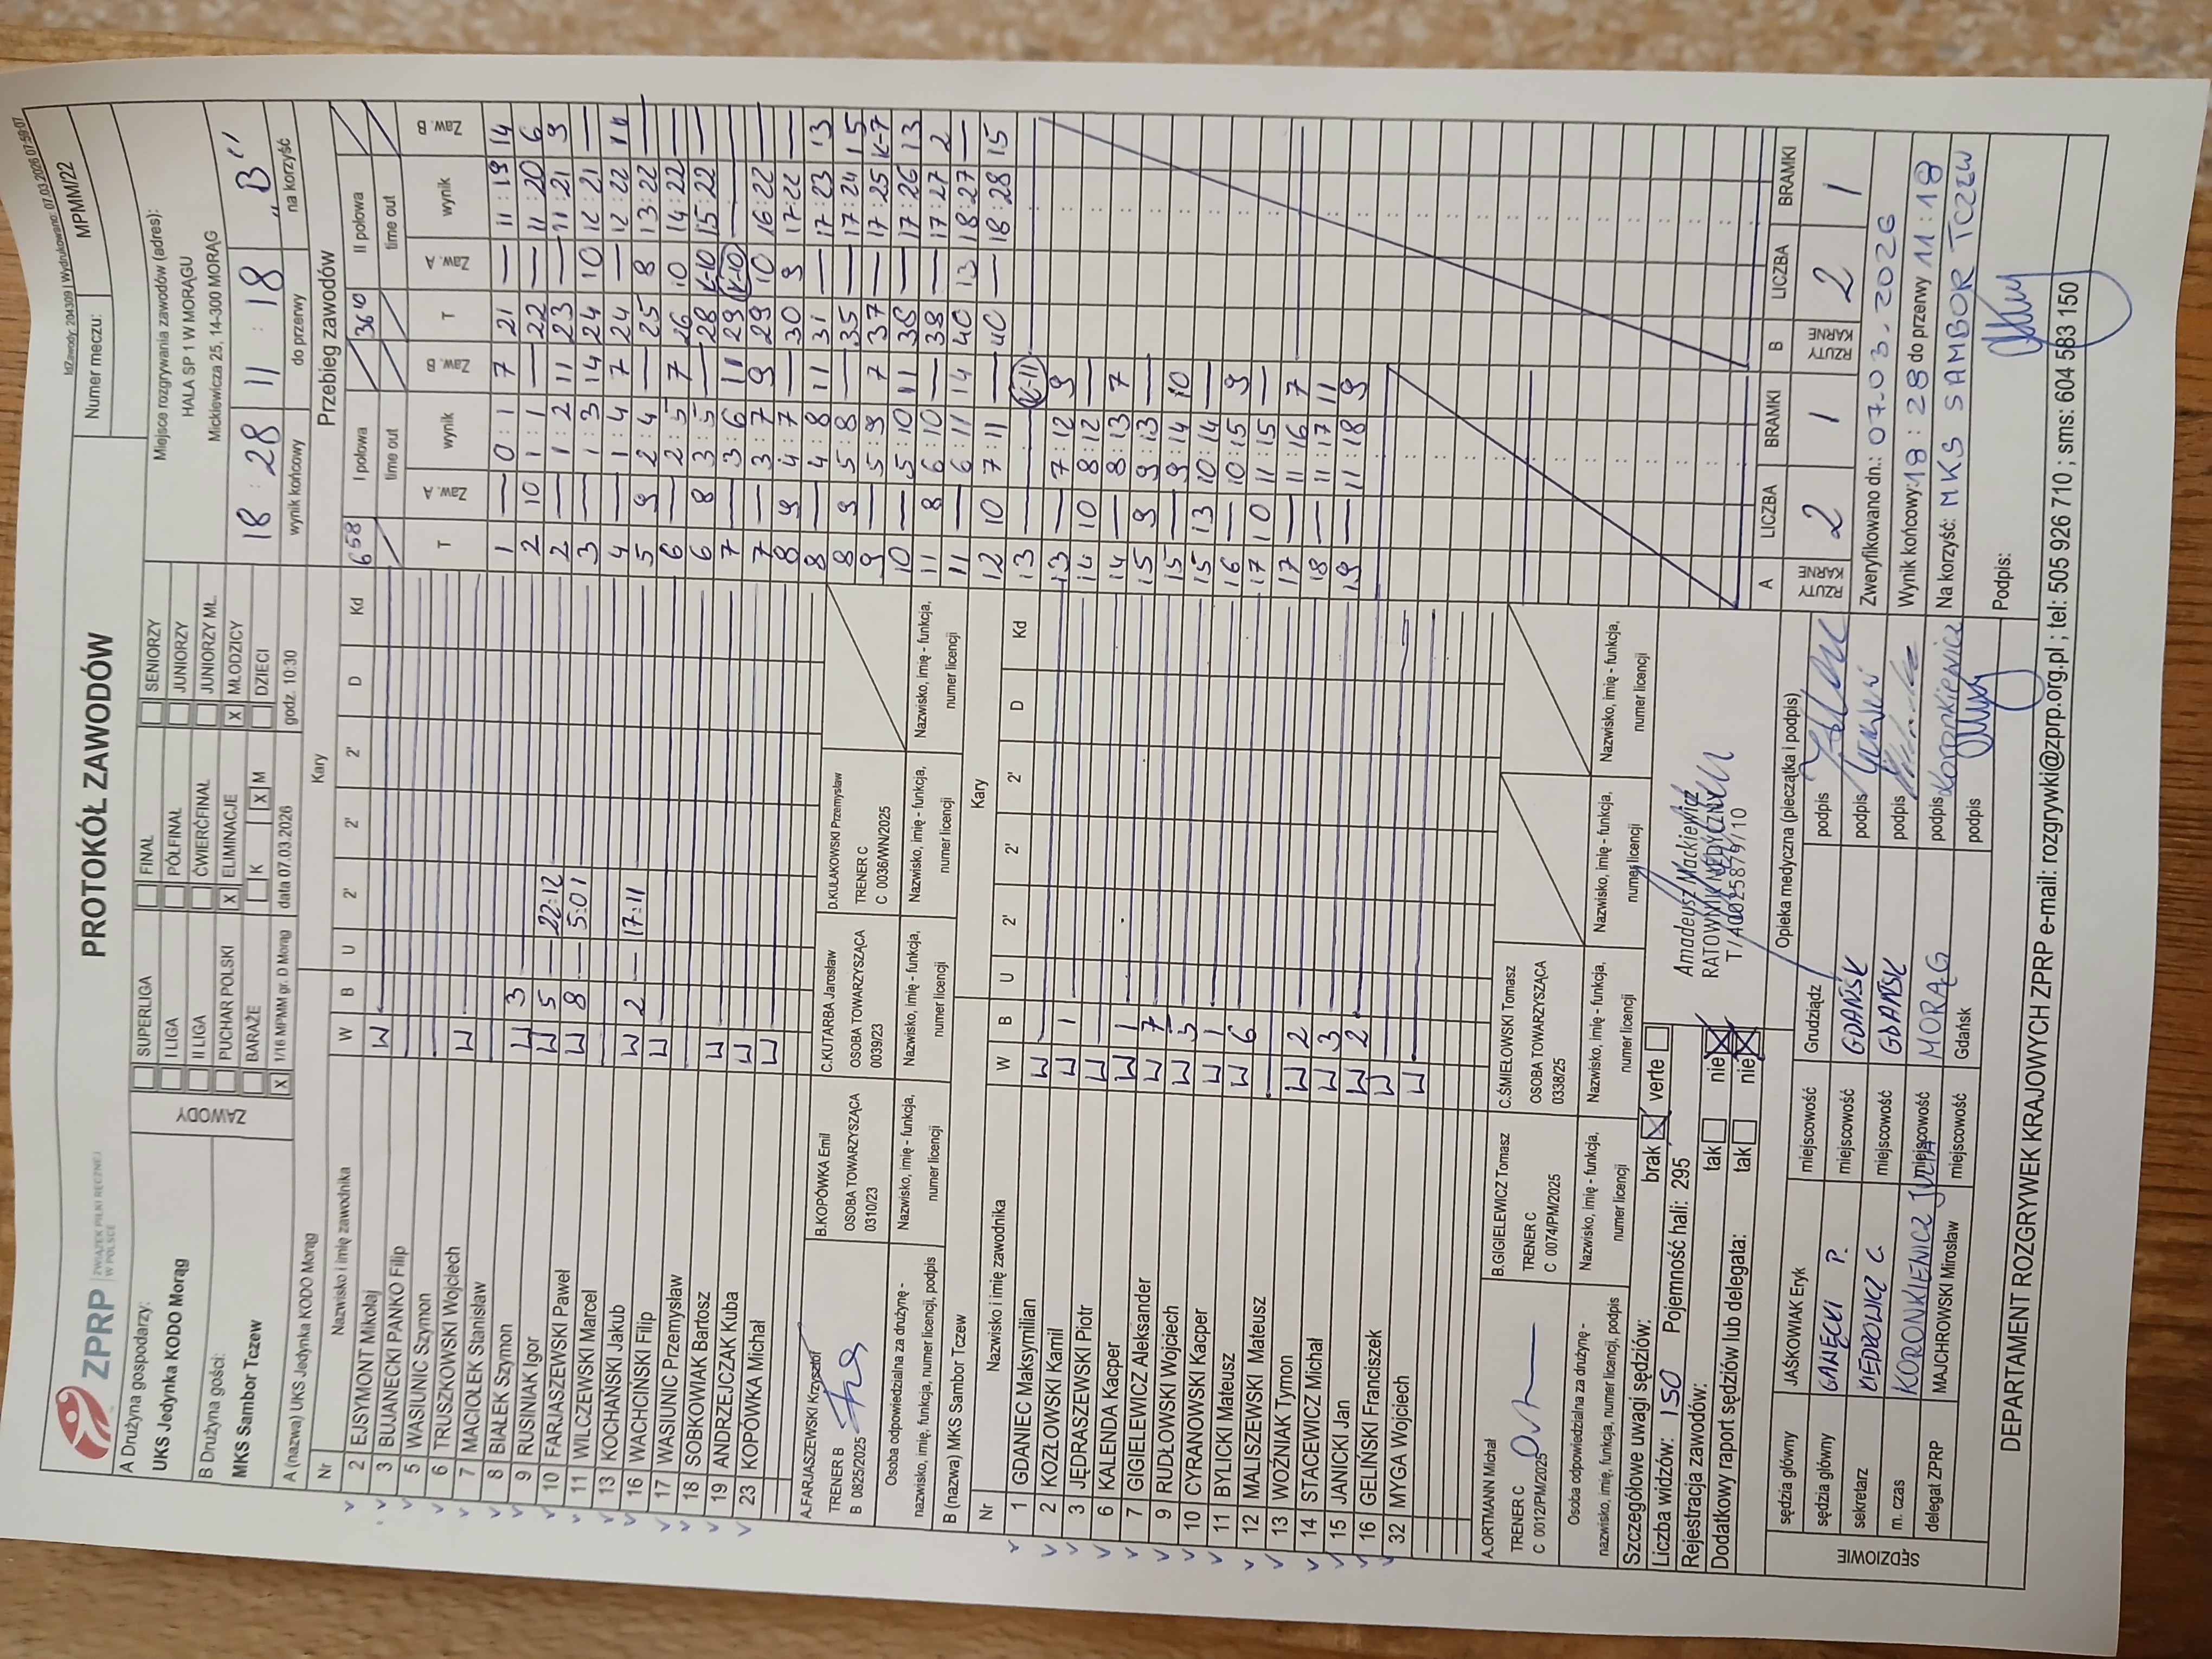 IdZawody: 204309 | Wydrukowano: 07.03.2026 07:59:07
ZPRP ZWIĄZEK PIŁKI RĘCZNEJ W POLSCE
PROTOKÓŁ ZAWODÓW
Numer meczu: MPMM/22
A Drużyna gospodarzy:
UKS Jedynka KODO Morąg
B Drużyna gości:
MKS Sambor Tczew
ZAWODY
SUPERLIGA
I LIGA
II LIGA
PUCHAR POLSKI
BARAŻE
X 1/16 MPMM gr. D Morąg
FINAŁ
PÓŁFINAŁ
ĆWIERĆFINAŁ
X ELIMINACJE
K X M
data 07.03.2026
SENIORZY
JUNIORZY
JUNIORZY MŁ.
X MŁODZICY
DZIECI
godz. 10:30
Miejsce rozgrywania zawodów (adres):
HALA SP 1 W MORĄGU
Mickiewicza 25, 14-300 MORĄG
18 : 28 11 : 18 „B”
wynik końcowy do przerwy na korzyść
A (nazwa) UKS Jedynka KODO Morąg
Kary
Nr Nazwisko i imię zawodnika W B U 2' 2' 2' D Kd
2 EJSYMONT Mikołaj W
3 BUJANECKI PANKO Filip
5 WASIUNIC Szymon
6 TRUSZKOWSKI Wojciech W
7 MACIOŁEK Stanisław
8 BIAŁEK Szymon W 3
9 RUSINIAK Igor W 5 — 22:12
10 FARJASZEWSKI Paweł W 8 — 5:01
11 WILCZEWSKI Marcel
13 KOCHAŃSKI Jakub W 2 — 17:11
16 WACHCIŃSKI Filip W
17 WASIUNIC Przemysław
18 SOBKOWIAK Bartosz W
19 ANDRZEJCZAK Kuba W
23 KOPÓWKA Michał W
A.FARJASZEWSKI Krzysztof
TRENER B
B 0825/2025
B.KOPÓWKA Emil
OSOBA TOWARZYSZĄCA
0310/23
C.KUTARBA Jarosław
OSOBA TOWARZYSZĄCA
0039/23
D.KULAKOWSKI Przemysław
TRENER C
C 0036/WN/2025
Osoba odpowiedzialna za drużynę -
nazwisko, imię, funkcja, numer licencji, podpis
Nazwisko, imię - funkcja,
numer licencji
Nazwisko, imię - funkcja,
numer licencji
Nazwisko, imię - funkcja,
numer licencji
Nazwisko, imię - funkcja,
numer licencji
B (nazwa) MKS Sambor Tczew
Kary
Nr Nazwisko i imię zawodnika W B U 2' 2' 2' D Kd
1 GDANIEC Maksymilian W
2 KOZŁOWSKI Kamil W 1
3 JĘDRASZEWSKI Piotr W
6 KALENDA Kacper W 1
7 GIGIELEWICZ Aleksander W 7
9 RUDŁOWSKI Wojciech W 5
10 CYRANOWSKI Kacper W 1
11 BYLICKI Mateusz W 6
12 MALISZEWSKI Mateusz
13 WOŹNIAK Tymon W 2
14 STACEWICZ Michał W 3
15 JANICKI Jan W 2
16 GELIŃSKI Franciszek W
32 MYGA Wojciech W
A.ORTMANN Michał
TRENER C
C 0012/PM/2025
B.GIGIELEWICZ Tomasz
TRENER C
C 0074/PM/2025
C.ŚMIEŁOWSKI Tomasz
OSOBA TOWARZYSZĄCA
0338/25
Osoba odpowiedzialna za drużynę -
nazwisko, imię, funkcja, numer licencji, podpis
Nazwisko, imię - funkcja,
numer licencji
Nazwisko, imię - funkcja,
numer licencji
Nazwisko, imię - funkcja,
numer licencji
Nazwisko, imię - funkcja,
numer licencji
Szczegółowe uwagi sędziów: brak verte
Liczba widzów: 150 Pojemność hali: 295
Rejestracja zawodów: tak nie
Dodatkowy raport sędziów lub delegata: tak nie
Amadeusz Mackiewicz
RATOWNIK MEDYCZNY
T/40025879/10
Opieka medyczna (pieczątka i podpis)
SĘDZIOWIE
sędzia główny JAŚKOWIAK Eryk miejscowość Grudziądz podpis
sędzia główny GANĘCKI P. miejscowość GDAŃSK podpis
sekretarz C. miejscowość GDAŃSK podpis
m. czas KORONKIEWICZ JULIA miejscowość MORĄG podpis Koronkiewicz
delegat ZPRP MAJCHROWSKI Mirosław miejscowość Gdańsk podpis
Przebieg zawodów
6 58 I połowa 36 10 II połowa
time out time out
T Zaw. A wynik Zaw. B T Zaw. A wynik Zaw. B
1 — 0:1 7 21 — 11:19 14
2 10 1:1 — 22 — 11:20 6
2 — 1:2 11 23 — 11:21 9
3 — 1:3 14 24 10 12:21 —
4 — 1:4 7 24 — 12:22 11
5 9 2:4 — 25 8 13:22 —
6 — 2:5 7 26 10 14:22 —
6 8 3:5 — 28 K-10 15:22 —
7 — 3:6 11 29 K-10 —
7 — 3:7 9 29 10 16:22 —
8 9 4:7 — 30 9 17:22 —
8 — 4:8 11 31 — 17:23 13
8 9 5:8 — 35 — 17:24 15
9 — 5:9 7 37 — 17:25 K-7
10 — 5:10 11 38 — 17:26 13
11 8 6:10 — 38 — 17:27 2
11 — 6:11 14 40 13 18:27 —
12 10 7:11 — 40 — 18:28 15
13 — K-11
13 — 7:12 9
14 10 8:12 —
14 — 8:13 7
15 9 9:13 —
15 — 9:14 10
15 13 10:14 —
16 — 10:15 9
17 10 11:15 —
17 — 11:16 7
18 — 11:17 11
19 — 11:18 9
A LICZBA BRAMKI B LICZBA BRAMKI
RZUTY KARNE 2 1 RZUTY KARNE 2 1
Zweryfikowano dn.: 07.03.2026
Wynik końcowy: 18 : 28 do przerwy 11 : 18
Na korzyść: MKS SAMBOR TCZEW
Podpis:
DEPARTAMENT ROZGRYWEK KRAJOWYCH ZPRP e-mail: rozgrywki@zprp.org.pl ; tel: 505 926 710 ; sms: 604 583 150